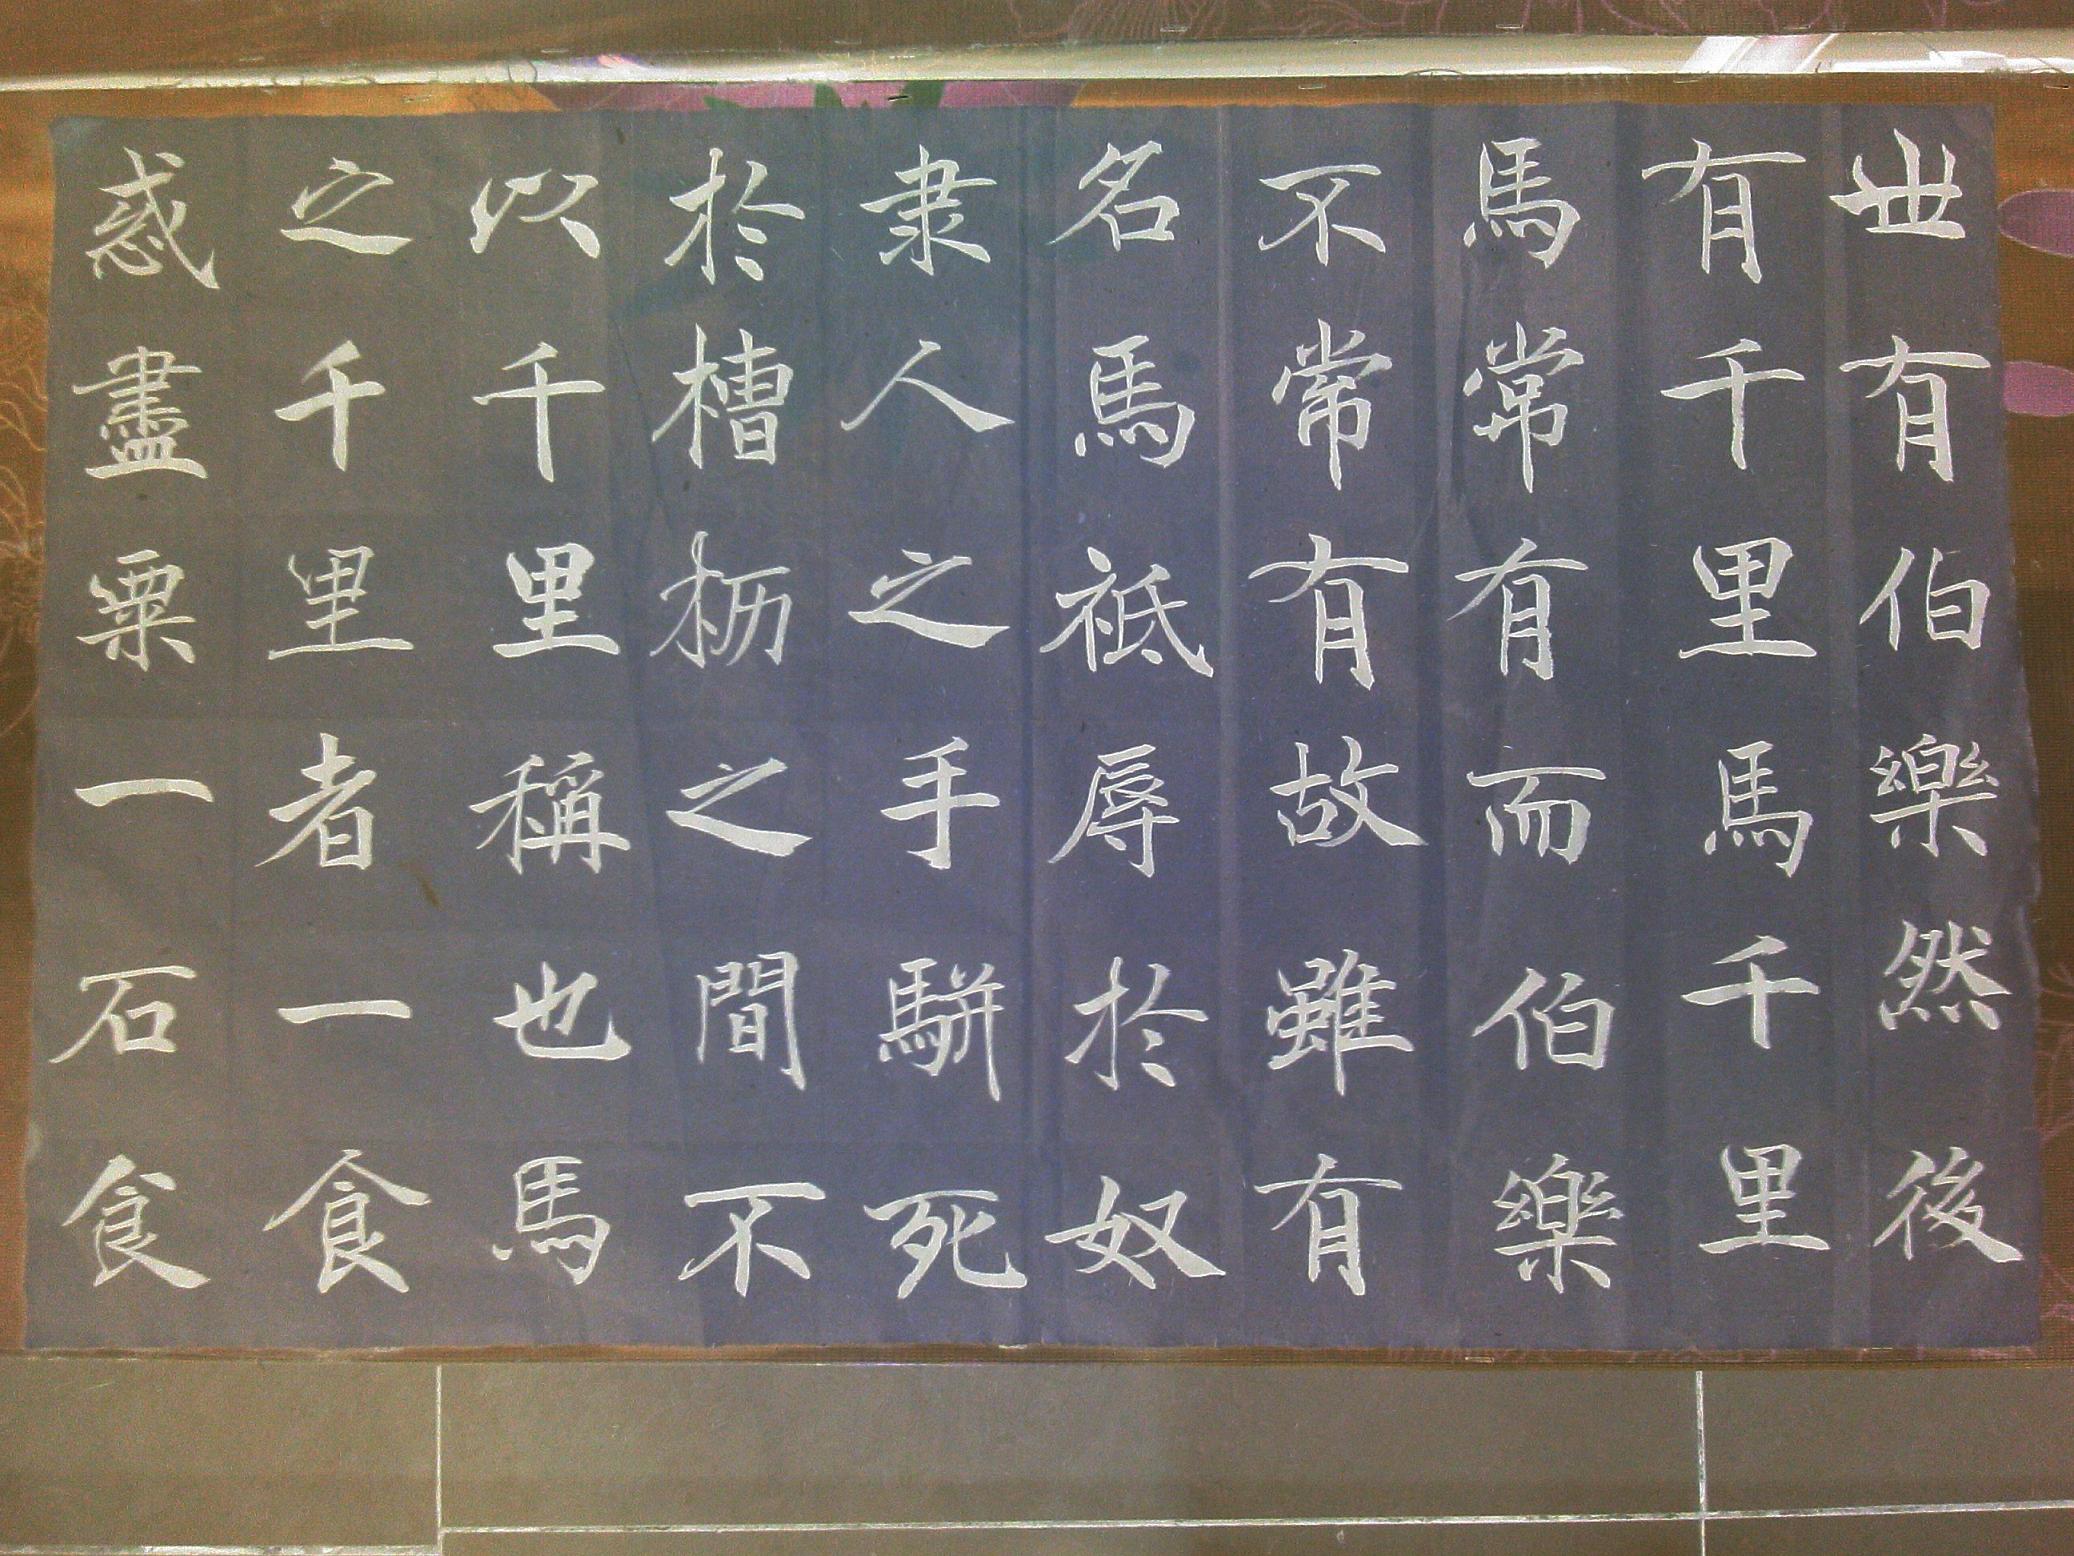 世有伯樂然後
有千里馬千里
馬常有而伯樂
不常有故雖有
名馬祗辱於奴
隶人之手駢死
於槽枥之間不
以千里稱也馬
之千里者一食
或盡粟一石食